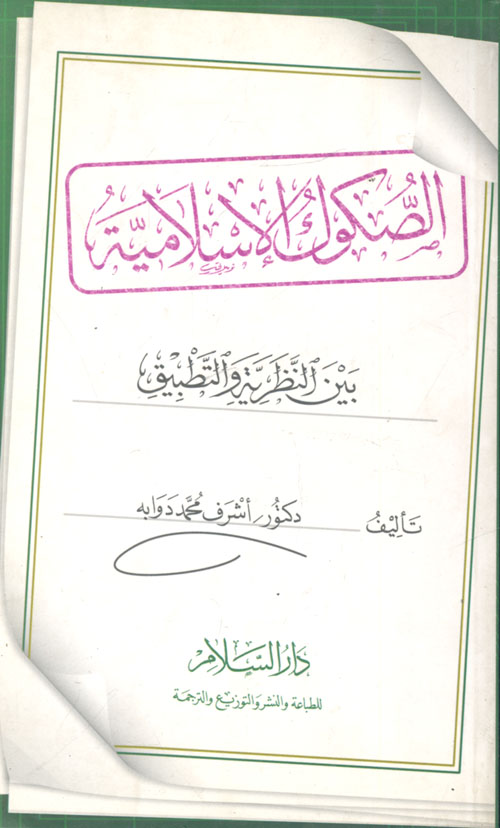 الصُّكوكُ الإسْلاميَّةُ
بَيْنَ النَّظَرِيَّةِ وَالتَّطْبِيْقِ
تَأليْفُ دكتُور/ أشرَف مُحمَّد دَوَابه
دَارُ السَّلَامِ
للطباعة والنشر والتوزيع والترجمة